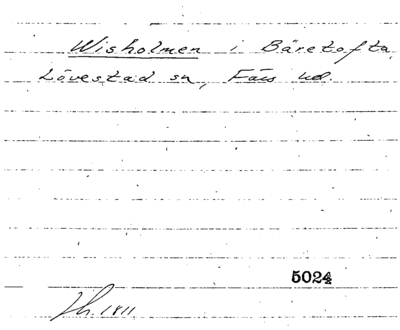 Wisholmen i Bäretofta,
Lövestad sn, Färs hd.
5024
Jh. 1811